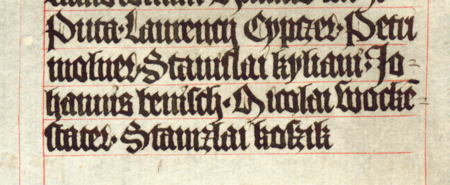 Puta · Laurencij Cyprzer · Petri
molner · Stanislai kyliani · Jo=
hannis benisch · Nicolai Wocke=
stater · Stanizlai koszik